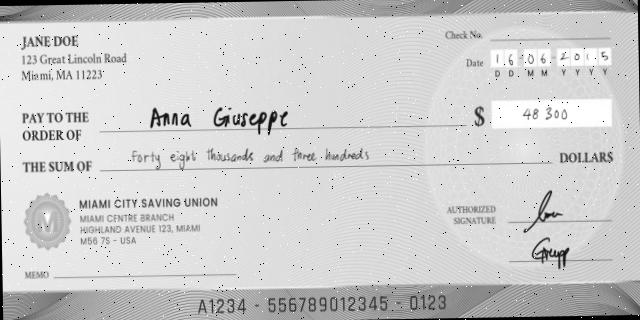 JANE DOE
123 Great Lincoln Road
Miami, MA 11223
Check No.
Date 16-06-2015
D D M M Y Y Y Y
PAY TO THE
ORDER OF Anna Giuseppe $ 48 300
THE SUM OF Forty eight thousands and three hundreds DOLLARS
MIAMI CITY SAVING UNION
MIAMI CENTRE BRANCH
HIGHLAND AVENUE 123, MIAMI
M56 7S - USA
AUTHORIZED
SIGNATURE
MEMO
A1234 - 556789012345 - 0123